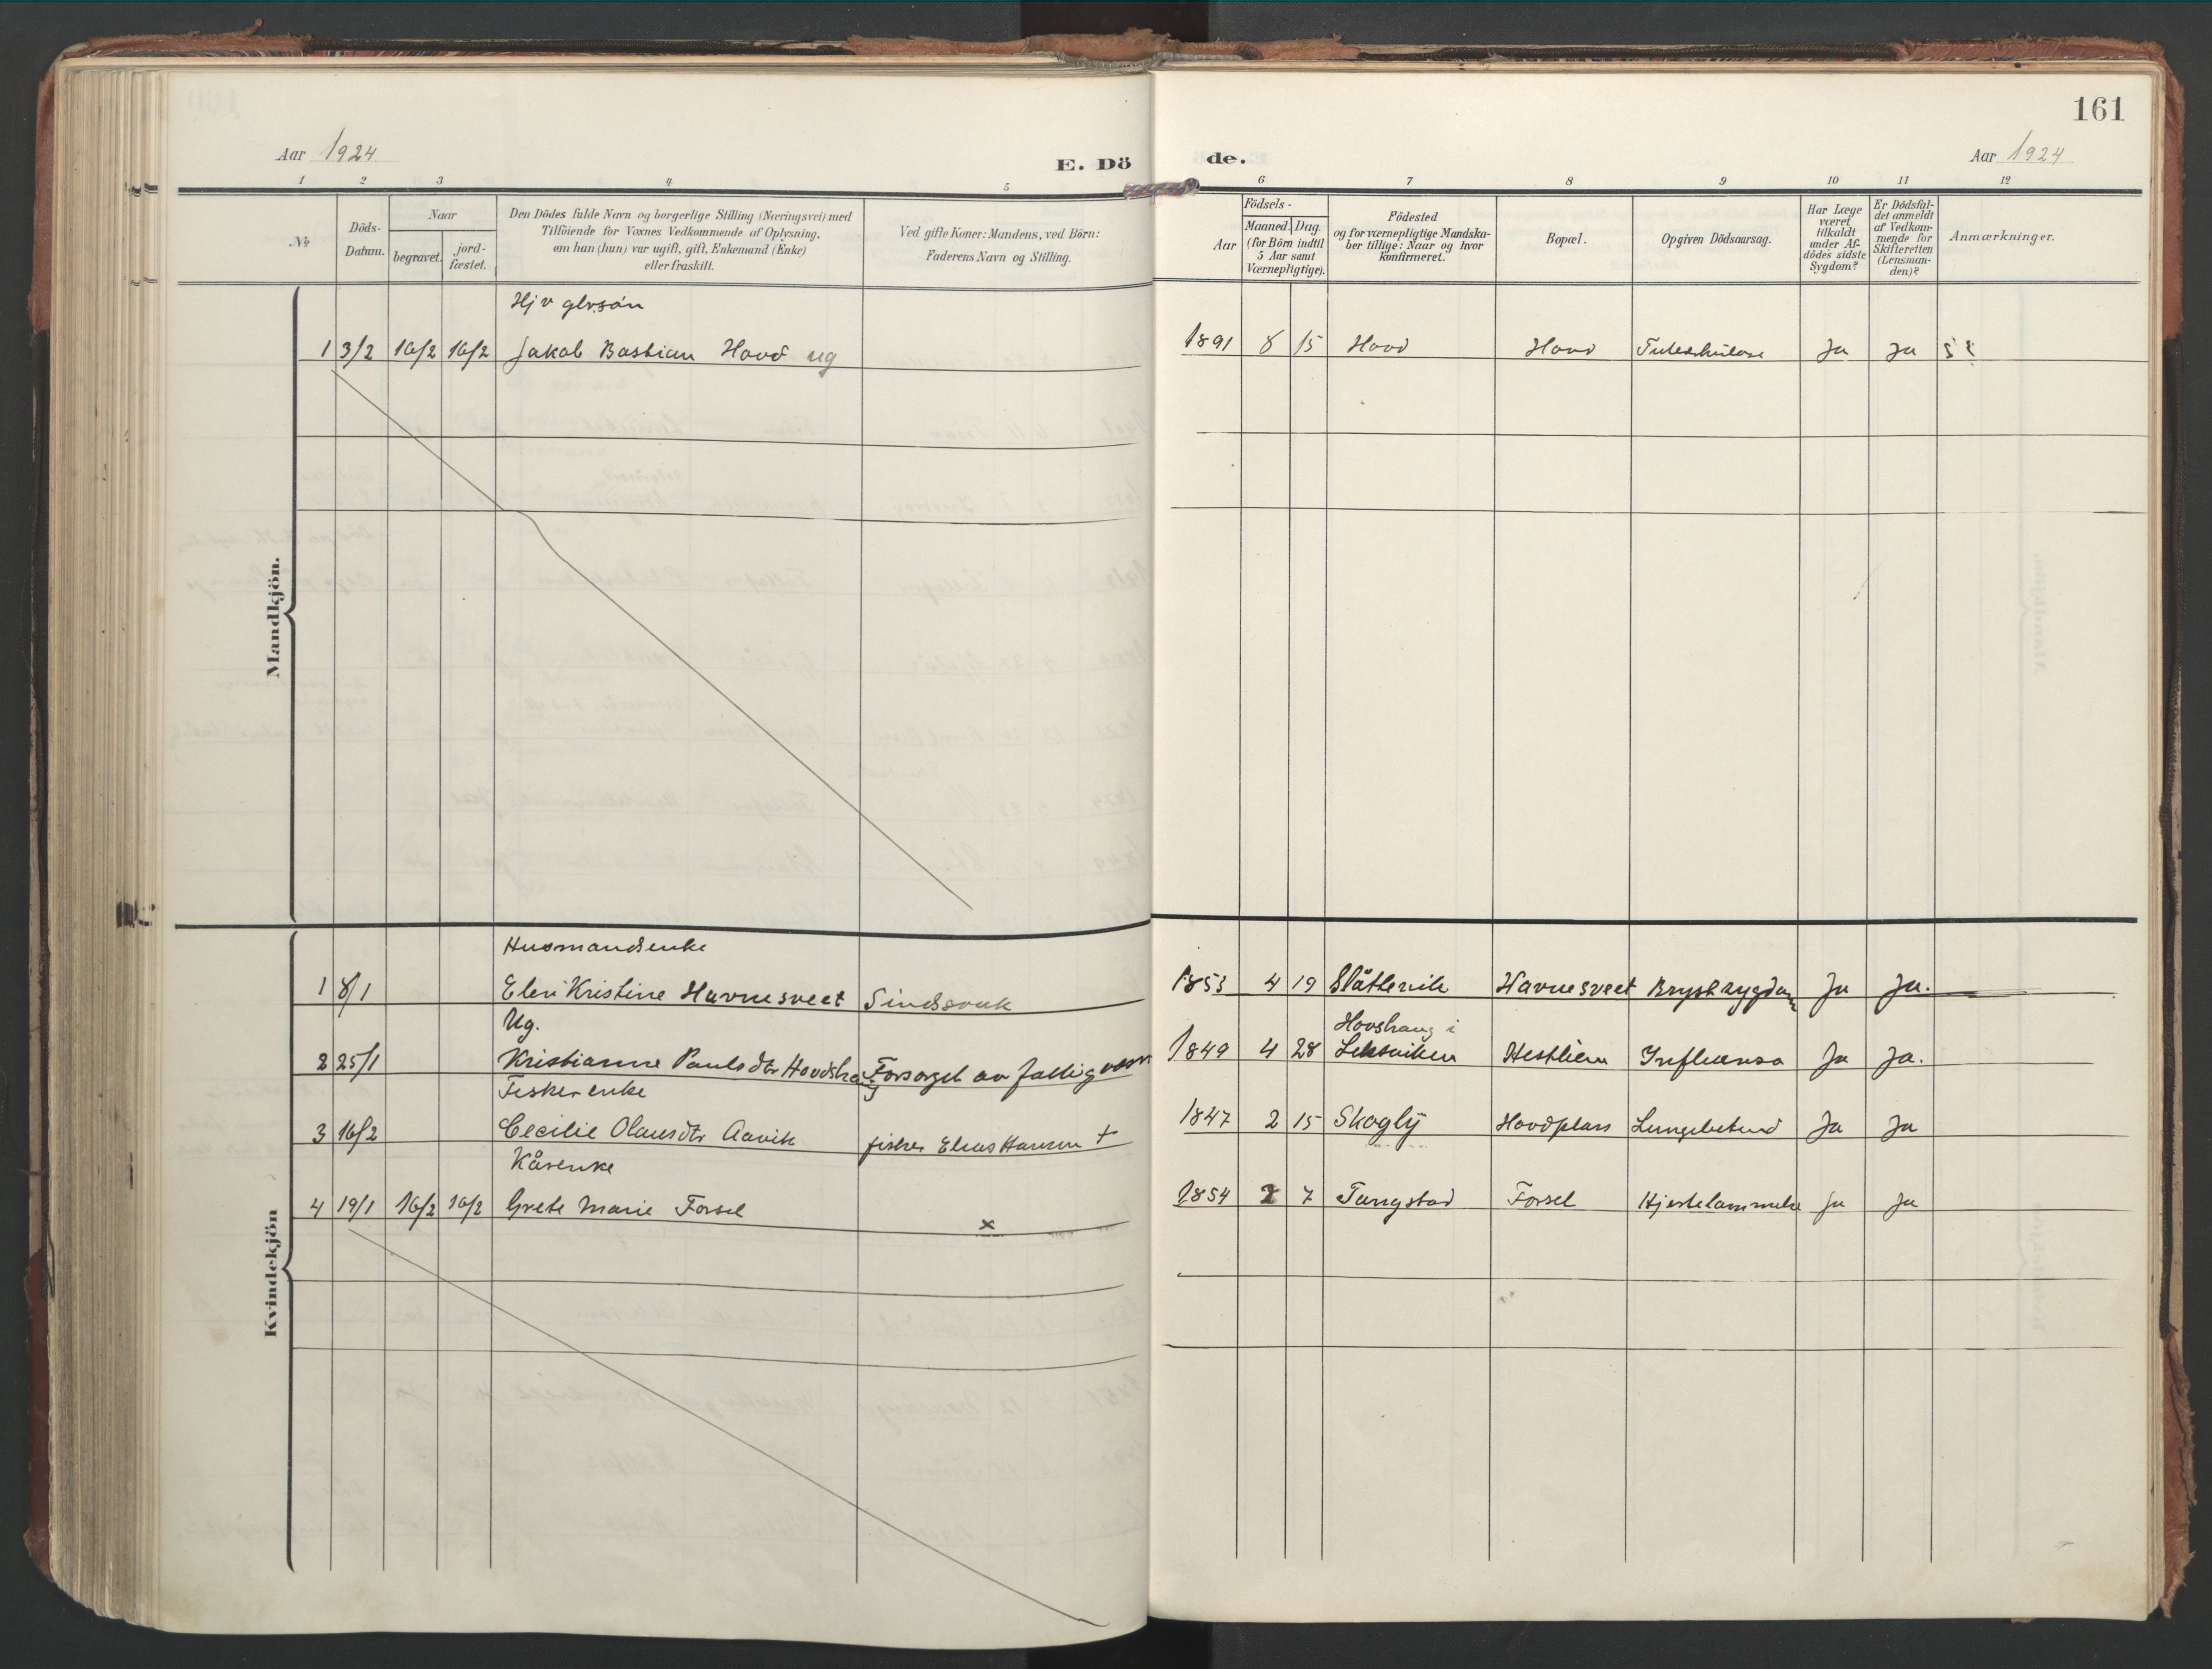 161
Aar 1924 E. Dö de. Aar 1924
1 2 3 4 5 6 7 8 9 10 11 12
№ Döds-Datum. Naar begravet. jord-fæstet. Den Dödes fulde Navn og borgerlige Stilling (Næringsvei) med Tilföiende for Voxnes Vedkommende af Oplysning, om han (hun) var ugift, gift, Enkemand (Enke) eller fraskilt. Ved gifte Koner: Mandens, ved Börn: Faderens Navn og Stilling. Födsels- Aar Maaned. Dag. (for Börn indtil 5 Aar samt Værnepligtige). Födested og for værnepligtige Mandskaber tillige: Naar og hvor konfirmeret. Bopæl. Opgiven Dödsaarsag. Har Læge været tilkaldt under Afdödes sidste Sygdom? Er Dödsfaldet anmeldt af Vedkommende for Skifteretten (Lensmanden)? Anmærkninger.
Mandkjön.
Hjv
1 3/2 16/2 16/2 Jakob Bastian Hovd ug 1891 8 15 Hovd Hovd Ja Ja
Kvindekjön
Husmandsenke
1 8/1 Elen Kristine Havnesveet Sindssvak 1853 4 19 Slåttevik Havnesveet Brystsygdom Ja Ja.
Ug. Hovshaug i
2 25/1 Kristianne Paulsdtr Hovdshaug Forsørget av fattigvæsn 1849 4 28 Leksviken Hestlien Influensa Ja Ja.
Fiskerenke
3 16/2 Cecilie Olausdtr Aavik fisker Elias Hansen + 1847 2 15 Skoglÿ Hovdplass Lungebetend Ja Ja
Kårenke
4 19/1 16/2 16/2 Grete Marie Forsel x 1854 2 7 Tangstad Forsel Hjertelammelse Ja Ja